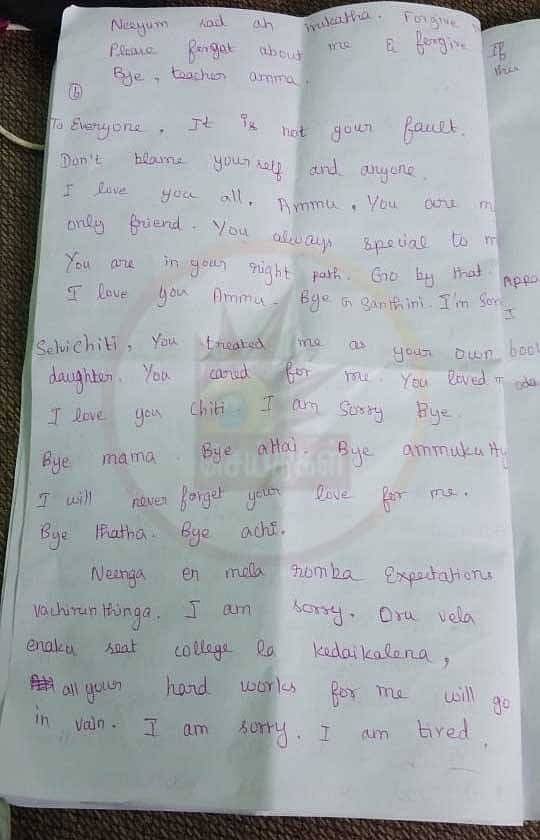 Neeyum sad ah irukatha. Forgive
Please forgat about me & forgive
Bye, teacher amma.
If
this
6
To Everyone, It is not your fault.
Don't blame yourself and anyone.
I love you all. Ammu, You are m
only friend. You always special to m
You are in your right path. Go by that.
I love you Ammu. Bye G Santhini. I'm Sorr
Appa
I
Selvichiti, You treated me as your own
daughter. You cared for me. You loved m
I love you Chiti. I am Sorry Bye.
Bye mama. Bye attai. Bye ammukutty
I will never forget your love for me.
Bye thatha. Bye achi.
Neenga en mela romba Expectations
vachirunthinga. I am sorry. Oru vela
enaku seat college la kedaikalena,
all your hard works for me will go
in vain. I am sorry. I am tired.